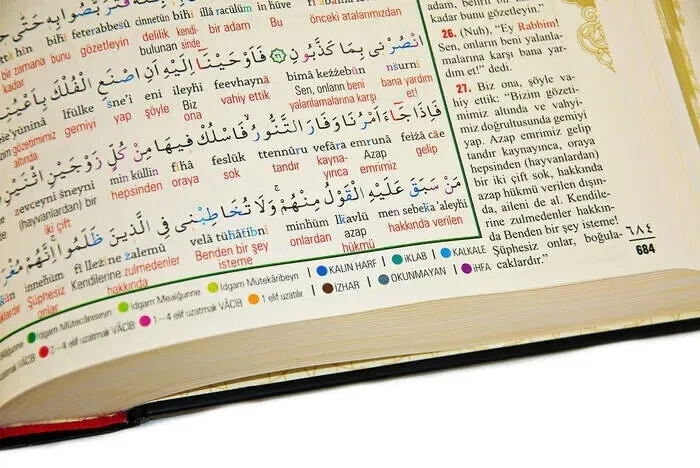 bihî feterabbesû cinnetün bihî illâ racülüm in hüve
bir zamana bunu gözetleyin delilik kendi- bir adam Bu önceki atalarımızdan
kadar bulunan sinde
انْصُرْنٖى بِمَا كَذَّبُونِ ﴿٢٦﴾ فَاَوْحَيْنَٓا اِلَيْهِ اَنِ اصْنَعِ الْفُلْكَ بِاَعْيُنِنَا
bie'yüninâ lfülke sne'i eni ileyhi feevhaynâ bimâ kezzebûn nsurnî
gözetimimiz gemiyi yap şöyle Biz Sen, onların beni bana yardım
altında vahiy ettik yalanlamalarına karşı et!
فَاِذَا جَٓاءَ اَمْرُنَا وَفَارَ التَّنُّورُۙ فَاسْلُكْ فٖيهَا مِنْ كُلٍّ زَوْجَيْنِ اثْنَيْنِ
zevceyni sneyni min küllin fîhâ feslük ttennûru vefâra emrunâ feizâ câe
(hayvanlardan) bir hepsinden oraya sok tandır kayna- Azap gelip
iki çift yınca emrimiz
مَنْ سَبَقَ عَلَيْهِ الْقَوْلُ مِنْهُمْۚ وَلَا تُخَاطِبْنٖى فِى الَّذٖينَ ظَلَمُواۚ اِنَّهُمْ
innehüm fî llezîne zalemû velâ tühâtibnî minhüm lkavlü men sebeka 'aleyhi
Şüphesiz Kendilerine zulmedenler Benden bir şey onlardan azap hakkında verilen
onlar hakkında isteme hükmü
İdgam Mütecaniseyn İdgam Mealğunne İdgam Mütekâribeyn KALIN HARF İKLAB KALKALE
2-4 elif uzatmak VÂCİB 1-4 elif uzatmak VÂCİB 1 elif uzatılır İZHAR OKUNMAYAN İHFA
adam, belirli bir
kadar bunu gözetleyin."
26. (Nuh), "Ey Rabbim!
Sen, onların beni yalanla-
malarına karşı bana yar-
dım et!" dedi.
27. Biz ona, şöyle va-
hiy ettik: "Bizim gözeti-
mimiz altında ve vahyi-
miz doğrultusunda gemiyi
yap. Azap emrimiz gelip
tandır kaynayınca, oraya
hepsinden (hayvanlardan)
bir iki çift sok, hakkında
azap hükmü verilen dışın-
da, aileni de al. Kendile-
rine zulmedenler hakkın-
da Benden bir şey isteme!
Şüphesiz onlar, boğula-
caklardır."
٦٨٤
684